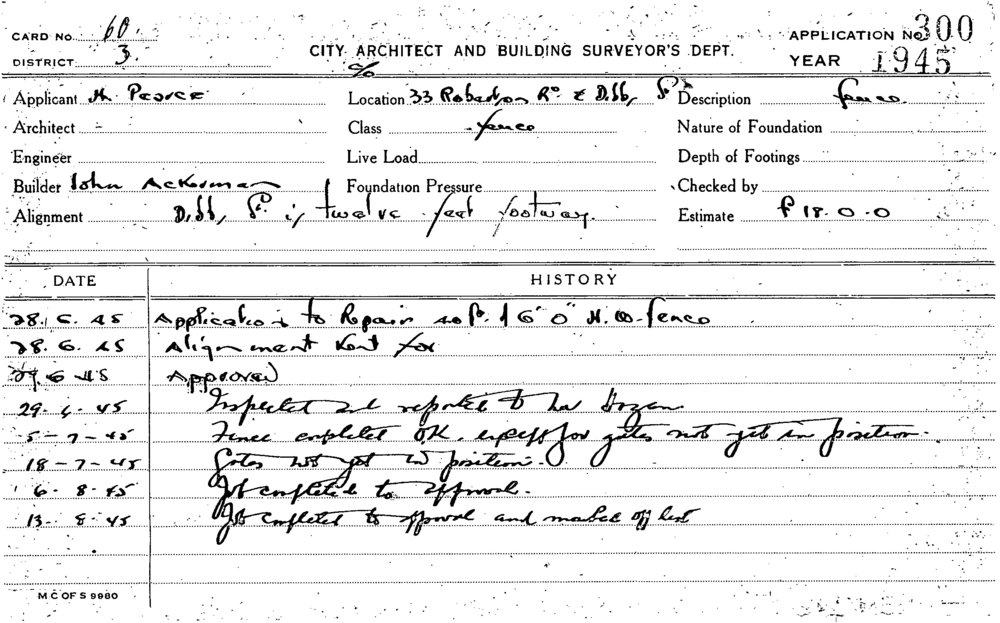 CARD NO. 60.
DISTRICT 3.
CITY ARCHITECT AND BUILDING SURVEYOR'S DEPT.
APPLICATION No 300
YEAR 1945
Applicant H. Pearce
Location c/o 33 Robertson Rd & Dibbs St
Description fence.
Architect -
Class fence
Nature of Foundation
Engineer
Live Load
Depth of Footings
Builder John Ackerman
Foundation Pressure
Checked by
Alignment Dibbs St. is twelve feet footway.
Estimate £18.0.0
DATE
HISTORY
28. 6. 45 Application to Repair 40 ft. of 6' 0" H. W. fence
28. 6. 45 Alignment sent for
29 6 45 Approved
29. 6. 45 Inspected and reported to
5-7-45 Fence completed OK. except for gates not yet in position.
18-7-45 Gates not yet in position.
6. 8. 45 Job completed to approval.
13. 8. 45 Job completed to approval and marked off list
M C OF S 9980